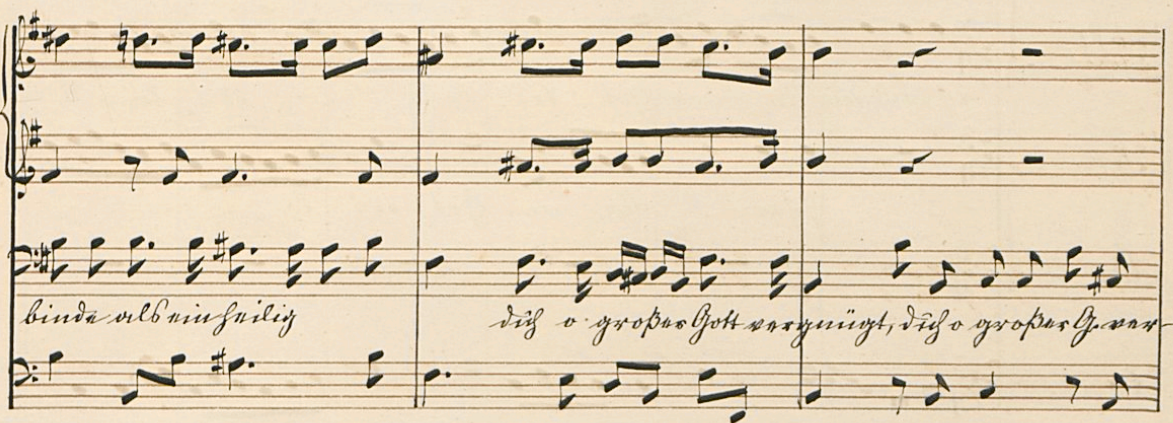 binde als ein heilig dich o großer Gott vergnügt, dich o großer G. ver-